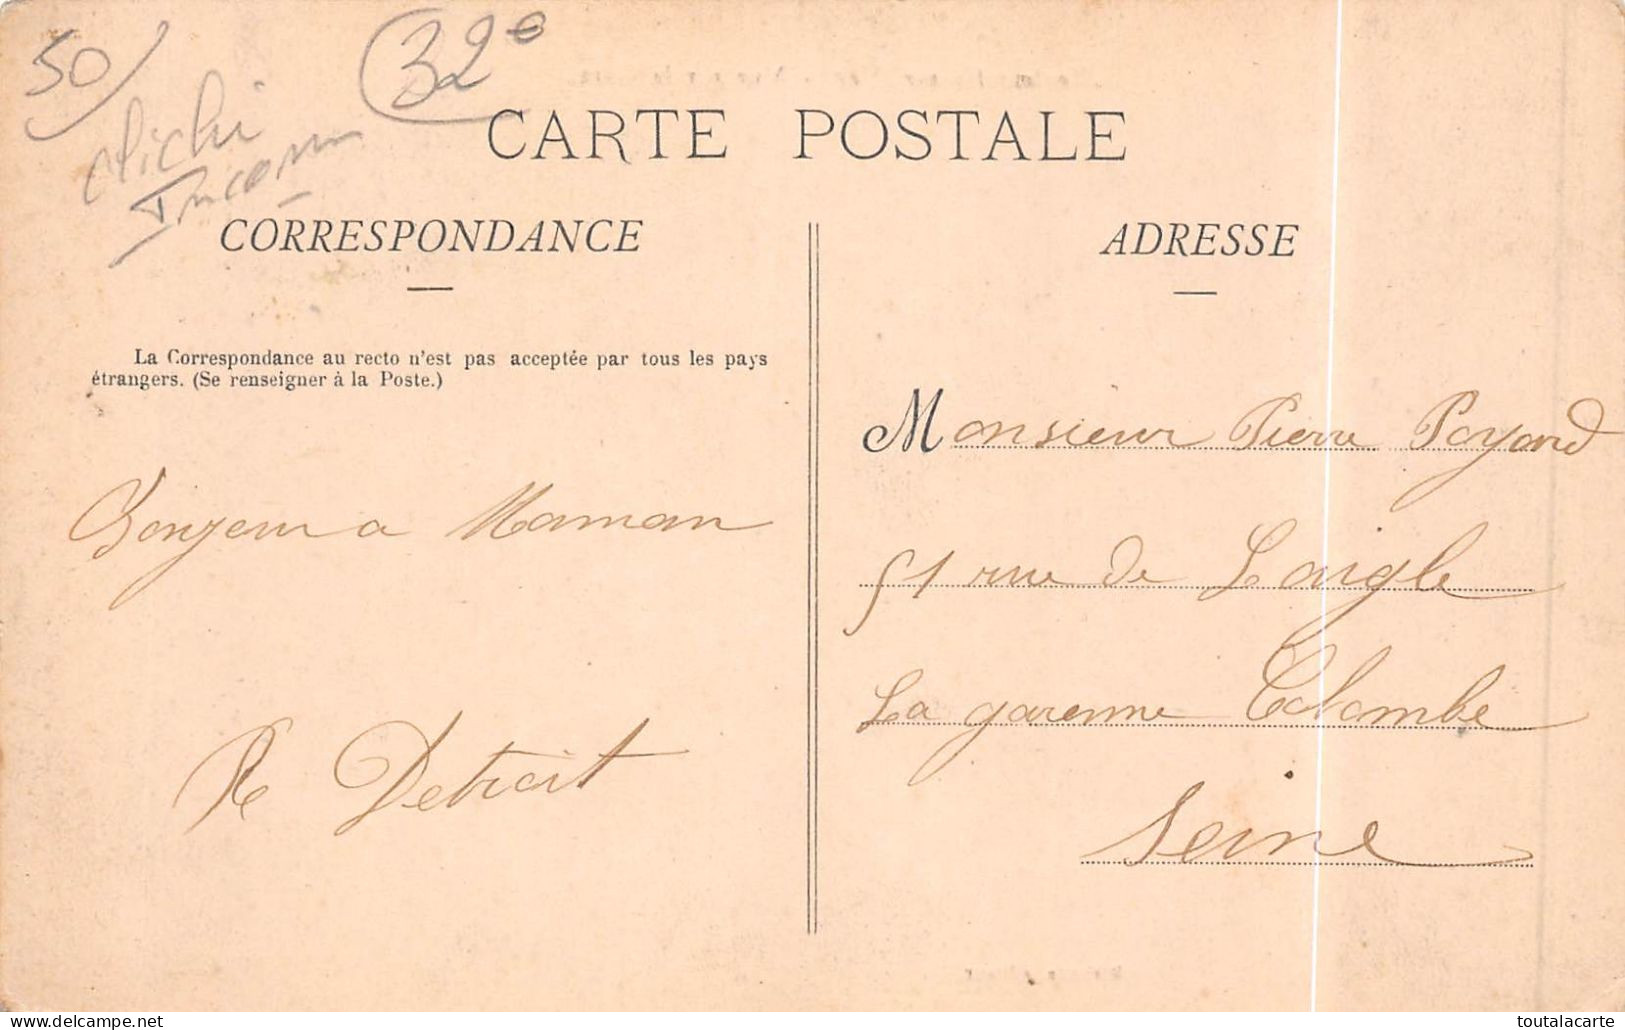 50
32€
clichi
Inconnu
CARTE POSTALE
CORRESPONDANCE
La Correspondance au recto n'est pas acceptée par tous les pays
étrangers. (Se renseigner à la Poste.)
Bonjour a Maman
R Detroit
ADRESSE
Monsieur Pierre Payard
51 rue de Laigle
La garenne Colombe
Seine
delcampe.net
toutalacarte